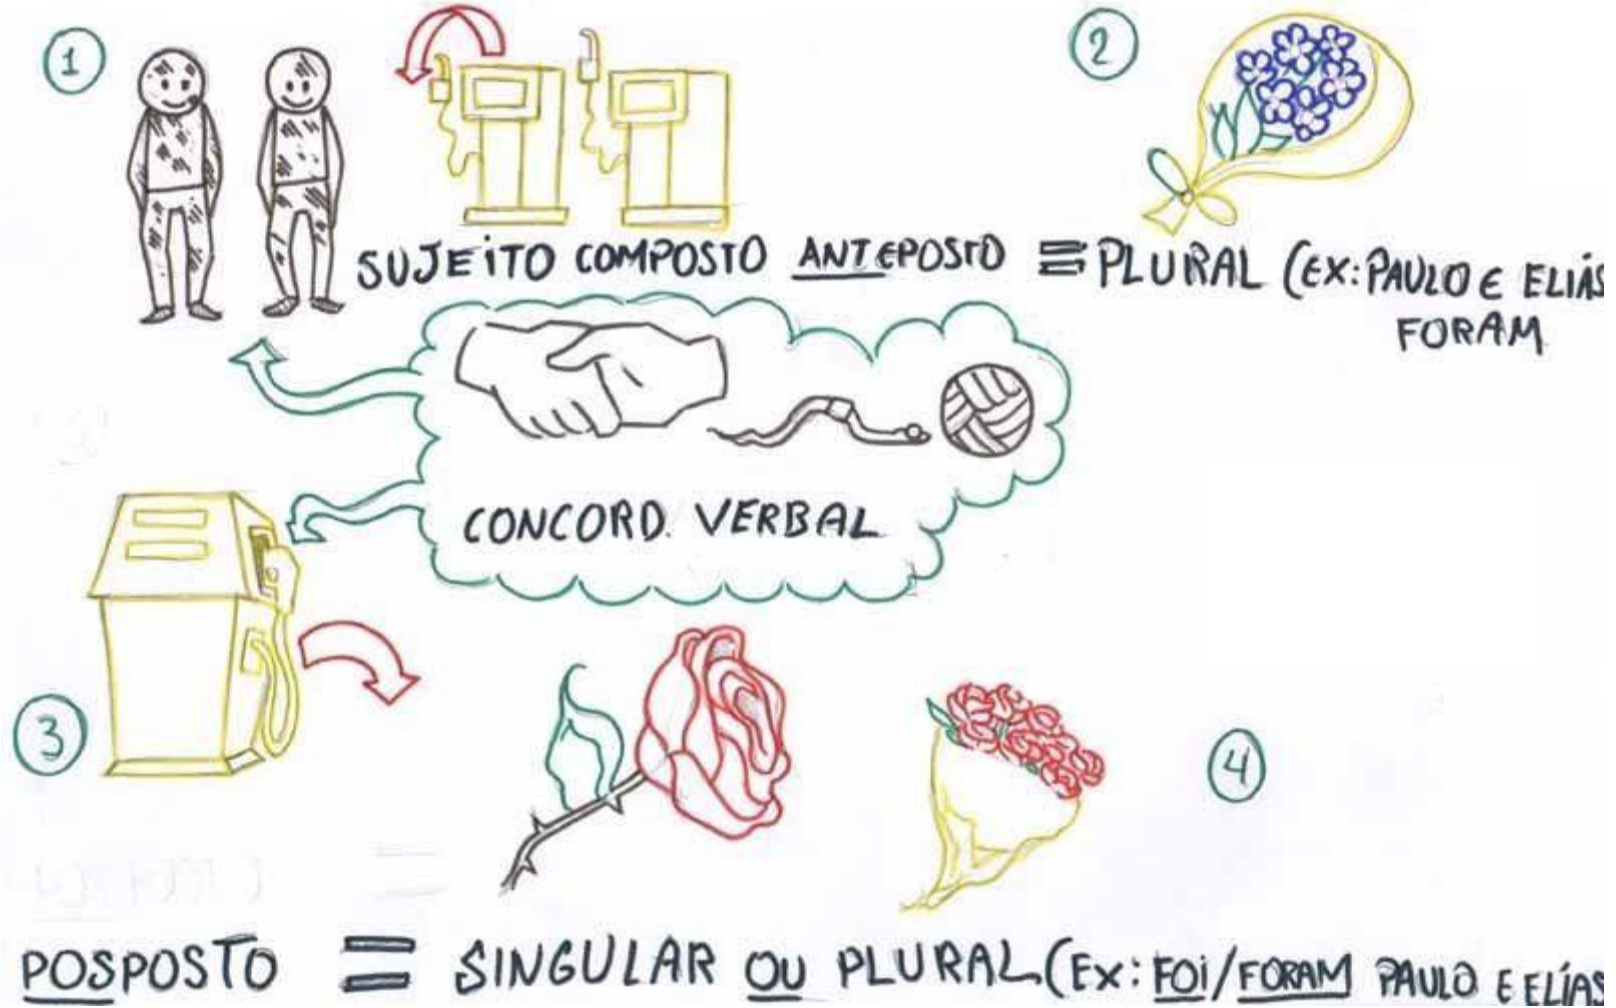 1
2
SUJEITO COMPOSTO ANTEPOSTO = PLURAL (EX: PAULO E ELIAS
FORAM
CONCORD. VERBAL
3
4
POSPOSTO = SINGULAR OU PLURAL (EX: FOI/FORAM PAULO E ELÍAS